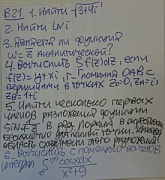 В21 1. Найти √3+4i
2. Найти Lni
3. Является ли функция
ω = z̄ аналитической?
4. Вычислить ∫f(z)dz, если
f(z)=y+xi, Γ-ломаная ОАВС с
вершинами в точках z₀=0, zA=i
zB=1+i
5. Найти несколько первых
членов разложения функции
в ряд Лорана в окрестности
область сходимости этого разложения
6. Вычислить
интеграл ∫ cosxdx
x²+9